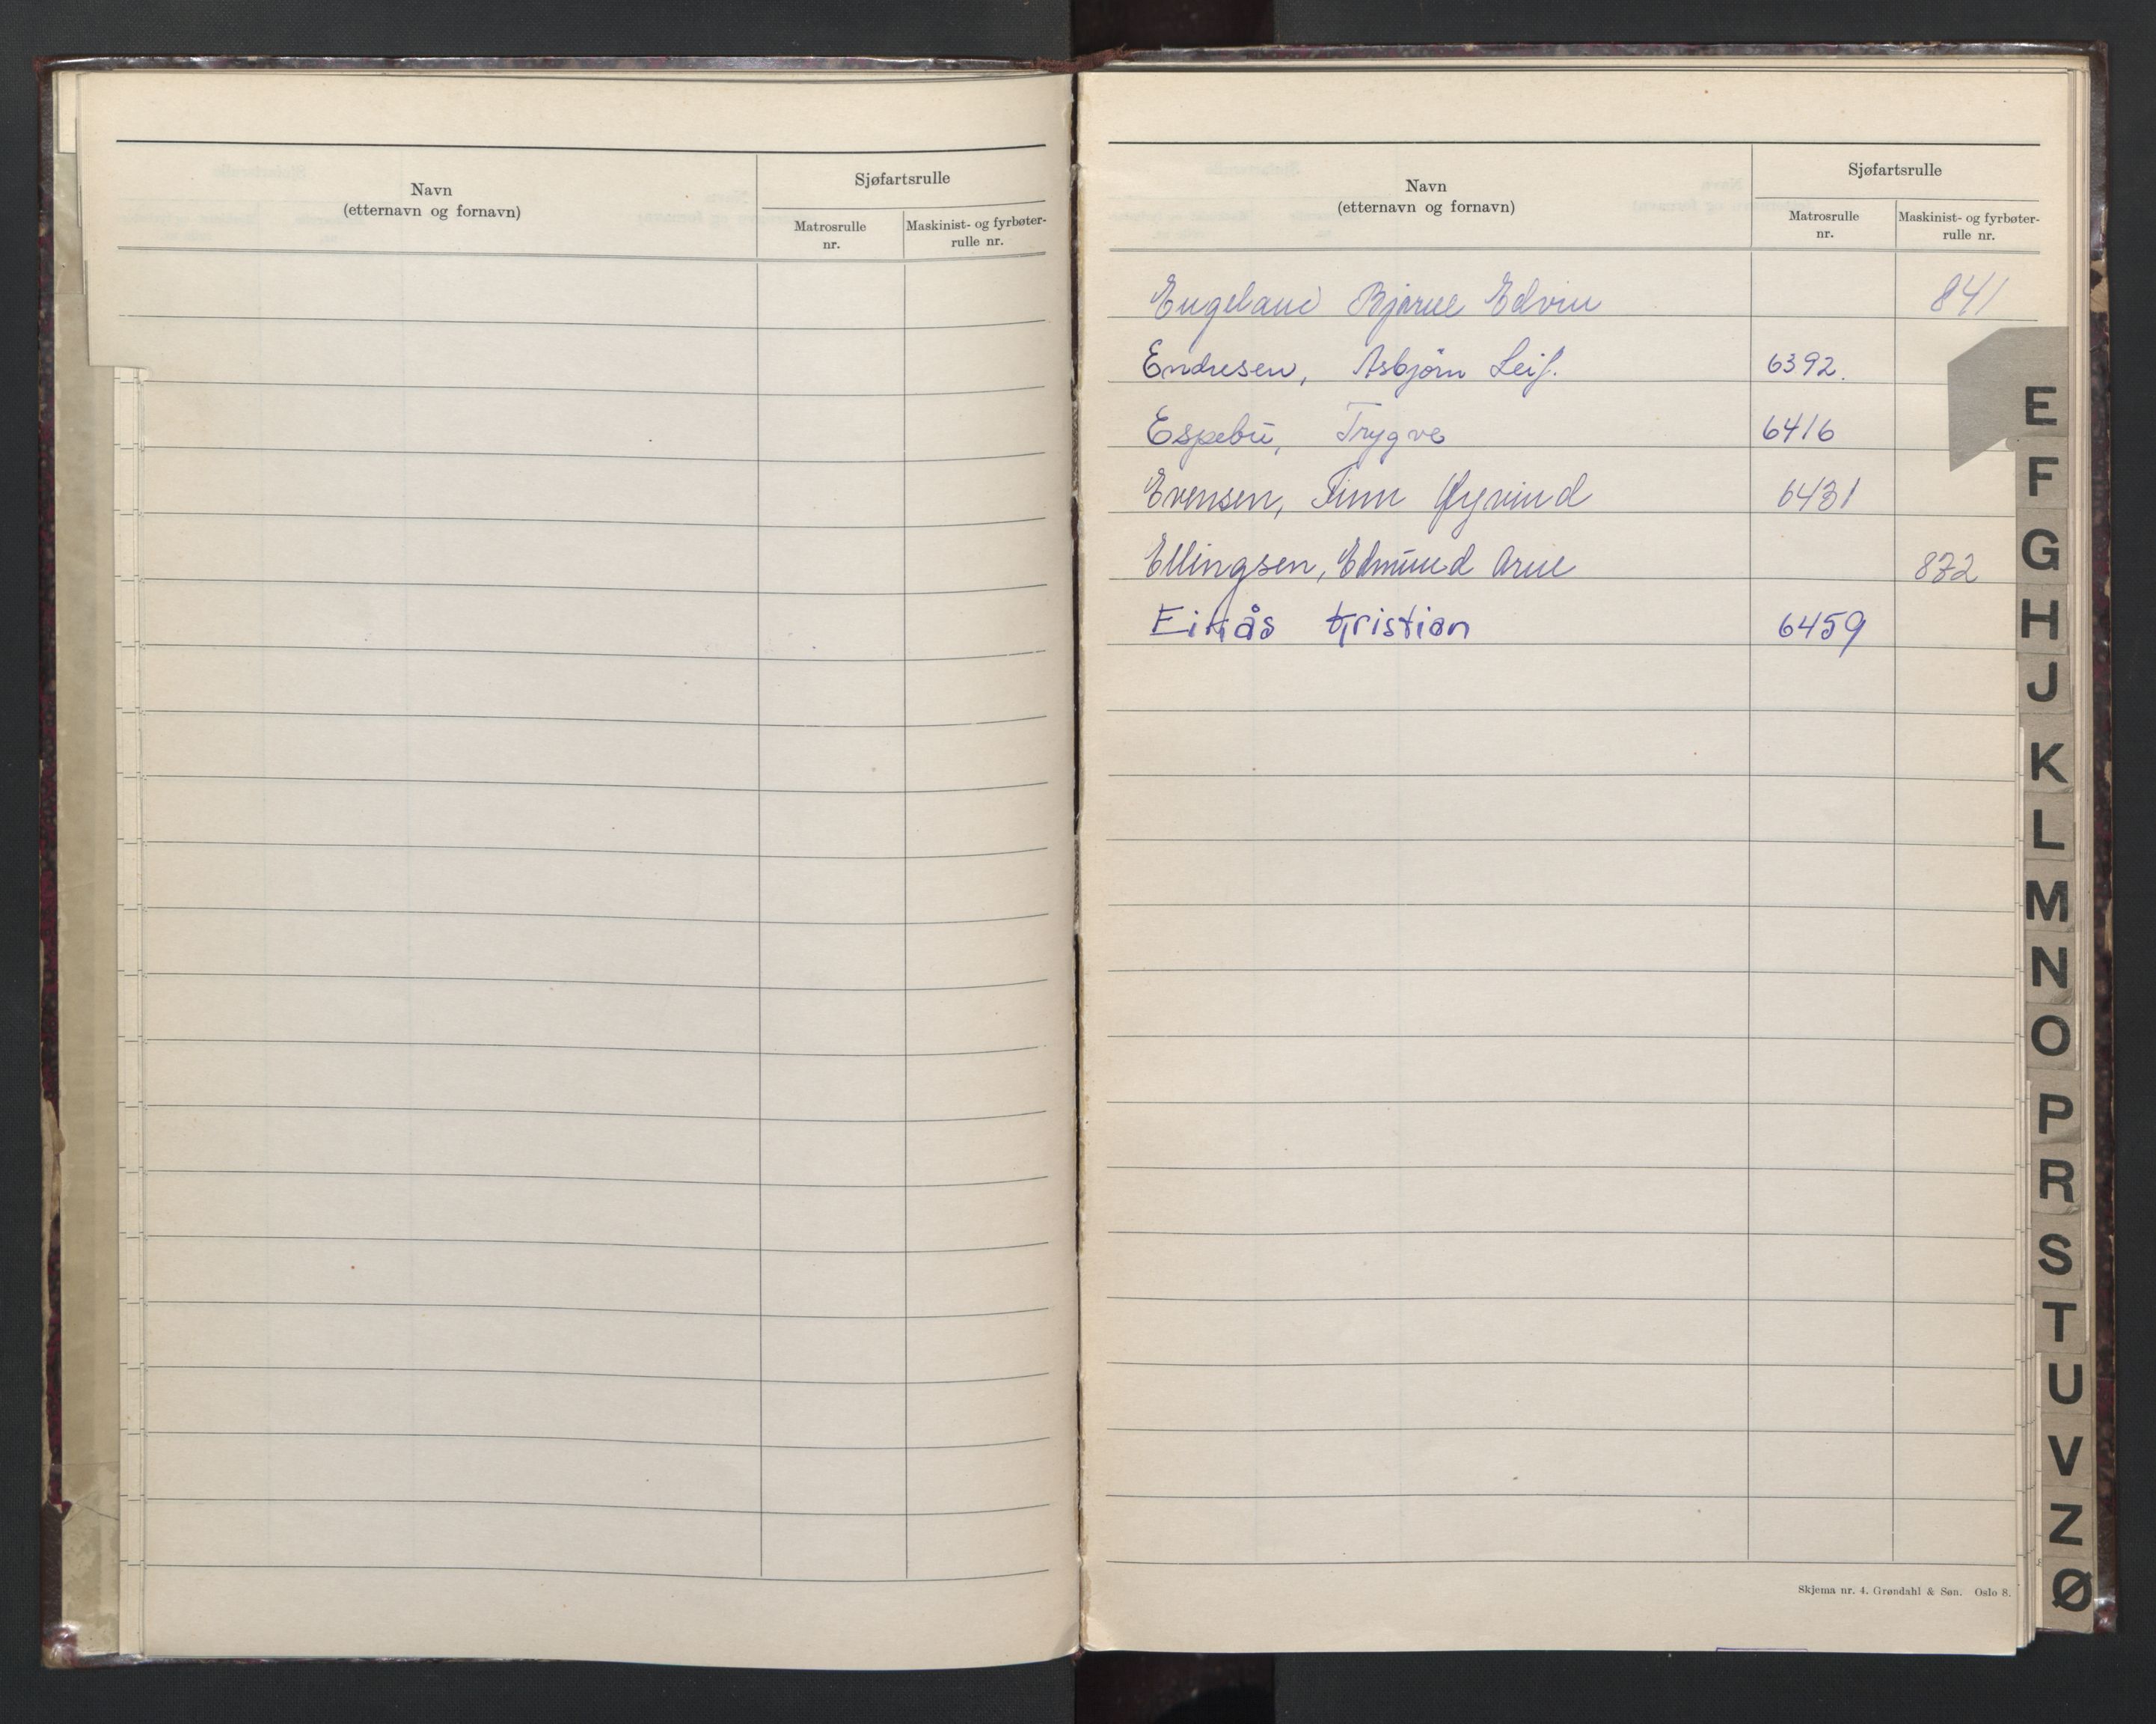 Navn
(etternavn og fornavn)
Sjøfartsrulle
Matrosrulle
nr.
Maskinist- og fyrbøter-
rulle nr.
Navn
(etternavn og fornavn)
Sjøfartsrulle
Matrosrulle
nr.
Maskinist- og fyrbøter-
rulle nr.
Engeland Bjarne Edvin 841
Endresen, Asbjørn Leif. 6392.
Espebu, Trygve 6416
Evensen, Finn Øyvind 6431
Ellingsen, Edmund Arne 872
Eikås Kristian 6459
E
F
G
H
J
K
L
M
N
O
P
R
S
T
U
V
Z
Ø
Skjema nr. 4. Grøndahl & Søn. Oslo 8.